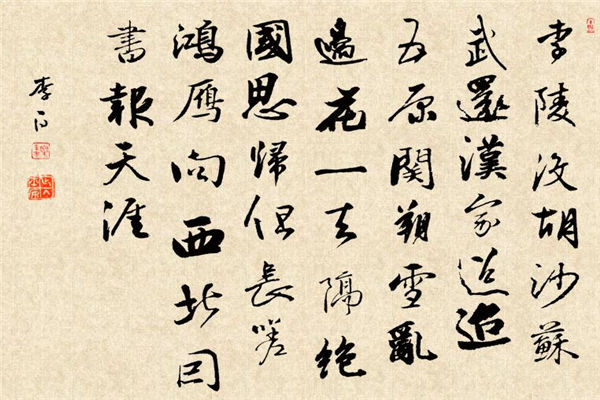 李陵没胡沙蘇
武還漢家迢迢
五原關朔雪亂
邊花一去隔絶
國思歸但長嗟
鴻鴈向西北因
書報天涯
李白